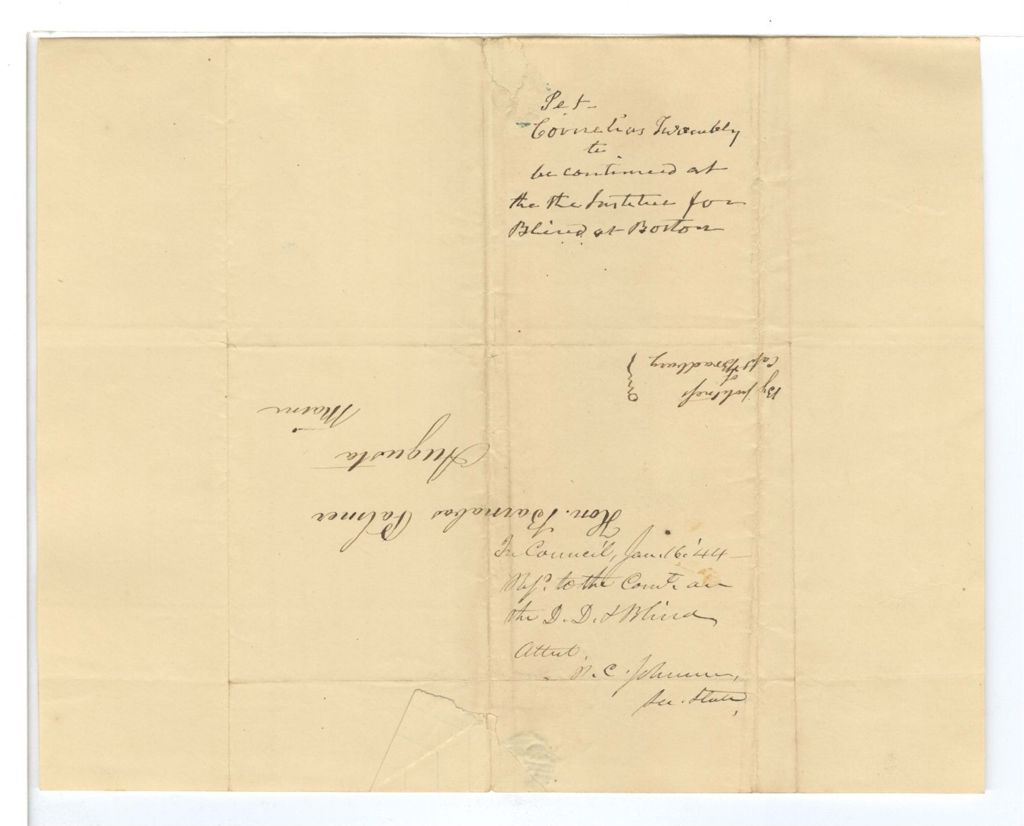 Pet-
Cornelius Twombly
to
be continued at
the the Institue for
Blind at Boston
By politness
of
Capt Bradbury
Hon. Barnabas Palmer
Augusta
Maine
In Council, Jan. 16, '44-
Ref'd to the Comte on
the D. D. & Blind
Attest,
P. C. Johnson,
Sec. State,